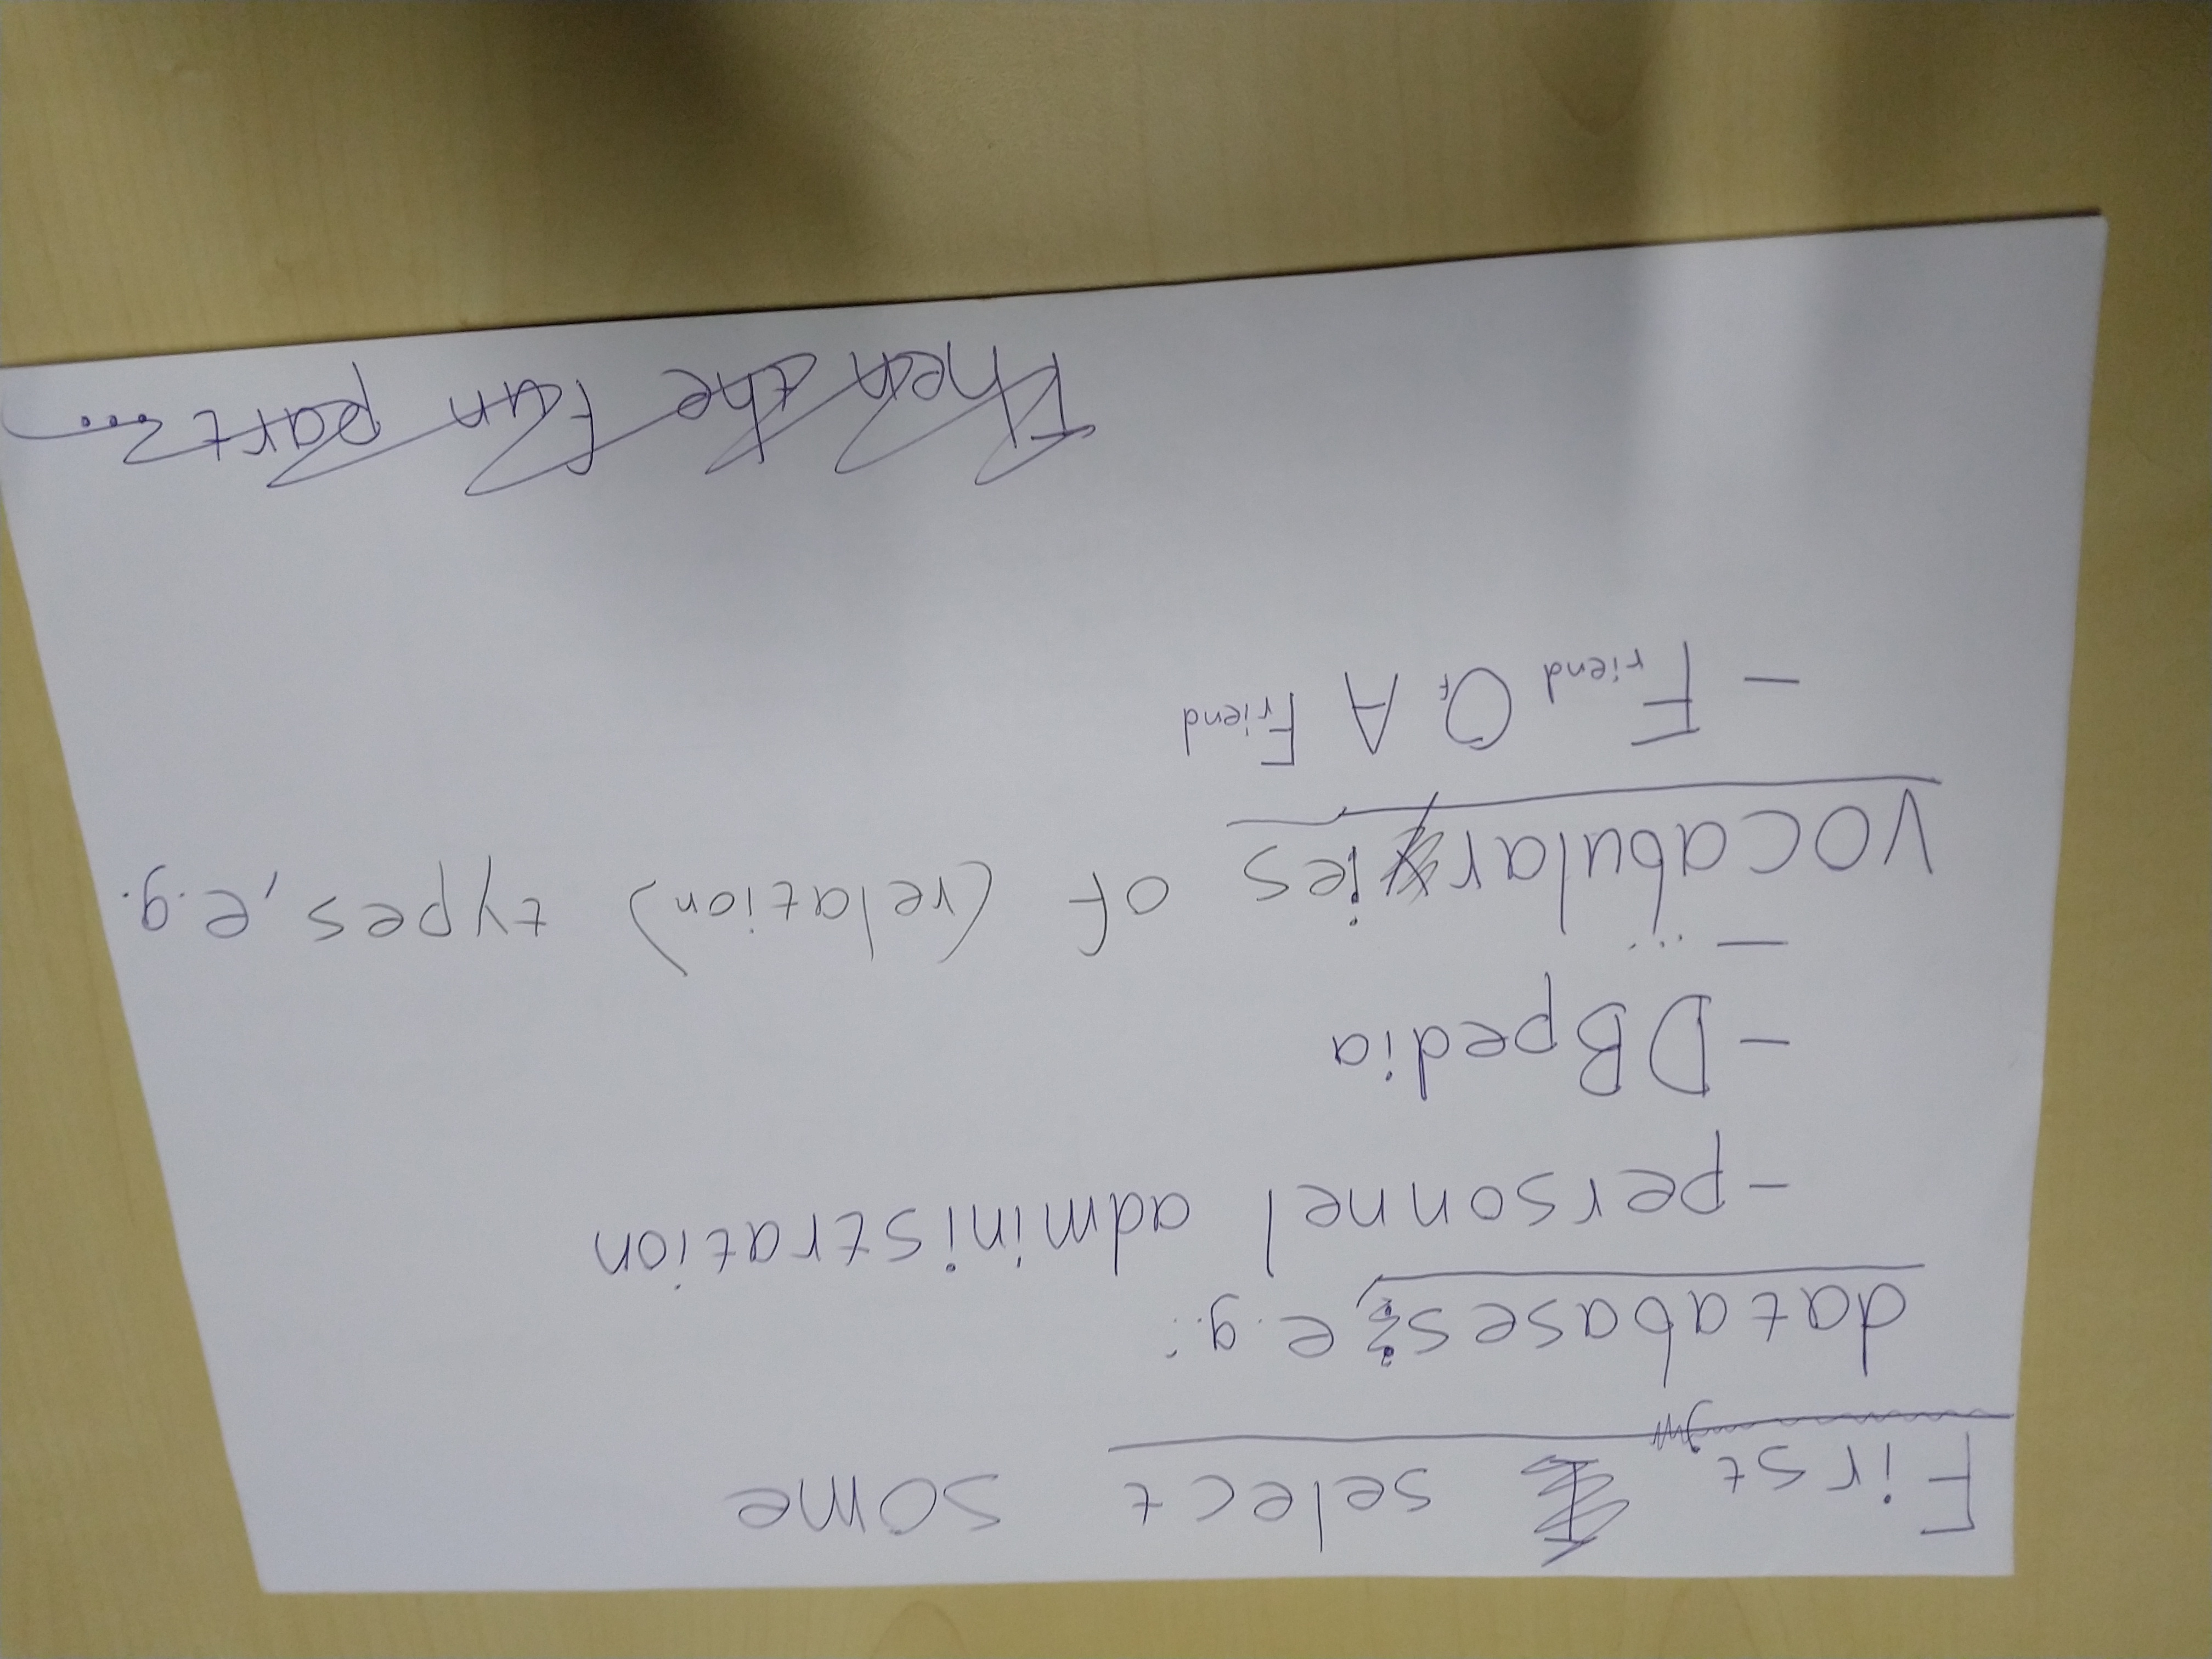 First, select some
databases, e.g.:
-personnel administration
- DBpedia
- ...
vocabularies of (relation) types, e.g.
- Friend Of A Friend
Then the fun part...